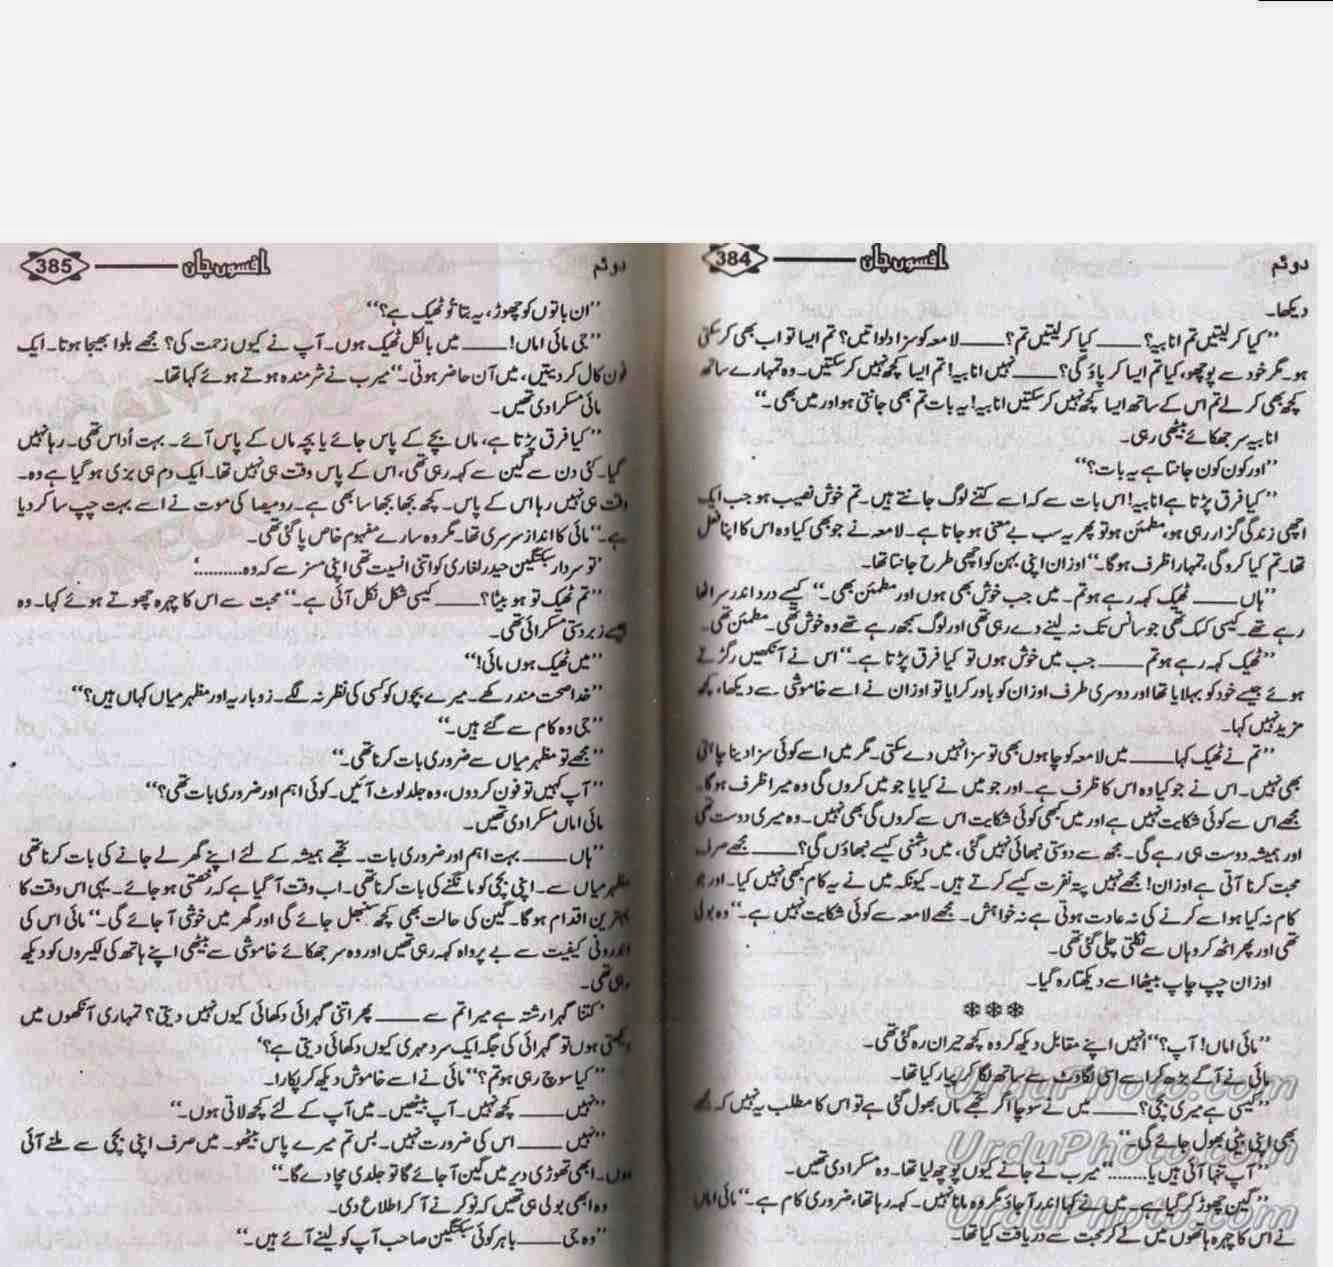 دوئم افسوں جاں 384
دیکھا۔
’’کیا کرلیتیں تم انابیہ؟ ____ کیا کرلیتیں تم؟ ____ لامعہ کو سزا دلواتیں؟ تم ایسا تو اب بھی کرسکتی
ہو۔ مگر خود سے پوچھو، کیا تم ایسا کر پاؤ گی؟ ____ نہیں انابیہ! تم ایسا کچھ نہیں کرسکتیں۔ وہ تمہارے ساتھ
کچھ بھی کرلے تم اس کے ساتھ ایسا کچھ نہیں کرسکتیں انابیہ! یہ بات تم بھی جانتی ہو اور میں بھی۔‘‘
انابیہ سر جھکائے بیٹھی رہی۔
’’اور کون کون جانتا ہے یہ بات؟‘‘
’’کیا فرق پڑتا ہے انابیہ! اس بات سے کہ اسے کتنے لوگ جانتے ہیں۔ تم خوش نصیب ہو جب ایک
اچھی زندگی گزار رہی ہو، مطمئن ہو تو پھر یہ سب بے معنی ہو جاتا ہے۔ لامعہ نے جو بھی کیا وہ اس کا اپنا فعل
تھا۔ تم کیا کرو گی، تمہارا ظرف ہوگا۔‘‘ اوزان اپنی بہن کو اچھی طرح جانتا تھا۔
’’ہاں ____ ٹھیک کہہ رہے ہو تم۔ میں جب خوش بھی ہوں اور مطمئن بھی۔‘‘ کیسے درد اندر سر اٹھا
رہے تھے۔ کیسی کسک تھی جو سانس تک نہ لینے دے رہی تھی اور لوگ سمجھ رہے تھے وہ خوش تھی۔ مطمئن تھی۔
’’ٹھیک کہہ رہے ہو تم ____ جب میں خوش ہوں تو کیا فرق پڑتا ہے۔‘‘ اس نے آنکھیں رگڑتے
ہوئے جیسے خود کو بہلایا تھا اور دوسری طرف اوزان کو باور کرایا تو اوزان نے اسے خاموشی سے دیکھا، کچھ
مزید نہیں کہا۔
’’تم نے ٹھیک کہا ____ میں لامعہ کو چاہوں بھی تو سزا نہیں دے سکتی۔ مگر میں اسے کوئی سزا دینا چاہتی
بھی نہیں۔ اس نے جو کیا وہ اس کا ظرف ہے۔ اور جو میں نے کیا یا جو میں کروں گی وہ میرا ظرف ہوگا۔
مجھے اس سے کوئی شکایت نہیں ہے اور میں کبھی کوئی شکایت اس سے کروں گی بھی نہیں۔ وہ میری دوست تھی
اور ہمیشہ دوست ہی رہے گی۔ مجھ سے دوستی نبھائی نہیں گئی، میں دشمنی کیسے نبھاؤں گی؟ ____ مجھے صرف
محبت کرنا آتی ہے اوزان! مجھے نہیں پتہ نفرت کیسے کرتے ہیں۔ کیونکہ میں نے یہ کام کبھی نہیں کیا۔ اور جو
کام نہ کیا ہو اسے کرنے کی نہ عادت ہوتی ہے نہ خواہش۔ مجھے لامعہ سے کوئی شکایت نہیں ہے۔‘‘ وہ بولی
تھی اور پھر اٹھ کر وہاں سے نکلتی چلی گئی تھی۔
اوزان چپ چاپ بیٹھا اسے دیکھتا رہ گیا۔
❄❄❄
’’مائی اماں! آپ؟‘‘ انہیں اپنے مقابل دیکھ کر وہ کچھ حیران رہ گئی تھی۔
مائی نے آگے بڑھ کر اسے اسی لگاوٹ سے ساتھ لگا کر پیار کیا تھا۔
’’کیسی ہے میری بچی؟ ____ میں نے سوچا اگر تجھے ماں بھول گئی ہے تو اس کا مطلب یہ نہیں کہ مجھے
بھی اپنی بیٹی بھول جائے گی۔‘‘
’’آپ تنہا آئی ہیں یا........‘‘ میرب نے جانے کیوں پوچھ لیا تھا۔ وہ مسکرا دی تھیں۔
’’گین چھوڑ کر گیا ہے۔ میں نے کہا اندر آجاؤ مگر وہ مانا نہیں۔ کہہ رہا تھا، ضروری کام ہے۔‘‘ مائی اماں
نے اس کا چہرہ ہاتھوں میں لے کر محبت سے دریافت کیا تھا۔
UrduPhoto.com
UrduPhoto.com
UrduPhoto.com
دوئم افسوں جاں 385
’’ان باتوں کو چھوڑ، یہ بتا تُو ٹھیک ہے؟‘‘
’’جی مائی اماں! ____ میں بالکل ٹھیک ہوں۔ آپ نے کیوں زحمت کی؟ مجھے بلوا بھیجا ہوتا۔ ایک
فون کال کر دیتیں، میں آن حاضر ہوتی۔‘‘ میرب نے شرمندہ ہوتے ہوئے کہا تھا۔
مائی مسکرا دی تھیں۔
’’کیا فرق پڑتا ہے، ماں بچے کے پاس جائے یا بچہ ماں کے پاس آئے۔ بہت اُداس تھی۔ رہا نہیں
گیا۔ کئی دن سے گین سے کہہ رہی تھی، اس کے پاس وقت ہی نہیں تھا۔ ایک دم ہی بزی ہو گیا ہے وہ۔
وقت ہی نہیں رہا اس کے پاس۔ کچھ بجھا بجھا سا بھی ہے۔ رومیصا کی موت نے اسے بہت چپ سا کر دیا
ہے۔‘‘ مائی کا انداز سرسری تھا۔ مگر وہ سارے مفہوم خاص پا گئی تھی۔
’تو سردار سبکتگین حیدر لغاری کو اتنی انسیت تھی اپنی مسز سے کہ وہ..........‘
’’تم ٹھیک تو ہو بیٹا؟ ____ کیسی شکل نکل آئی ہے۔‘‘ محبت سے اس کا چہرہ چھوتے ہوئے کہا۔ وہ
جیسے زبردستی مسکرائی تھی۔
’’میں ٹھیک ہوں مائی!‘‘
’’خدا صحت مند رکھے۔ میرے بچوں کو کسی کی نظر نہ لگے۔ زوباریہ اور مظہر میاں کہاں ہیں؟‘‘
’’جی وہ کام سے گئے ہیں۔‘‘
’’مجھے تو مظہر میاں سے ضروری بات کرنا تھی۔‘‘
’’آپ کہیں تو فون کر دوں، وہ جلد لوٹ آئیں۔ کوئی اہم اور ضروری بات تھی؟‘‘
مائی اماں مسکرا دی تھیں۔
’’ہاں ____ بہت اہم اور ضروری بات۔ تجھے ہمیشہ کے لئے اپنے گھر لے جانے کی بات کرنا تھی
مظہر میاں سے۔ اپنی بچی کو مانگنے کی بات کرنا تھی۔ اب وقت آ گیا ہے کہ رخصتی ہو جائے۔ یہی اس وقت کا
بہترین اقدام ہو گا۔ گین کی حالت بھی کچھ سنبھل جائے گی اور گھر میں خوشی آ جائے گی۔‘‘ مائی اس کی
اندرونی کیفیت سے بے پرواہ کہہ رہی تھیں اور وہ سر جھکائے خاموشی سے بیٹھی اپنے ہاتھ کی لکیروں کو دیکھ
رہی تھی۔
’کتنا گہرا رشتہ ہے میرا تم سے ____ پھر اتنی گہرائی دکھائی کیوں نہیں دیتی؟ تمہاری آنکھوں میں
دیکھتی ہوں تو گہرائی کی جگہ ایک سرد مہری کیوں دکھائی دیتی ہے؟‘
’’کیا سوچ رہی ہو تم؟‘‘ مائی نے اسے خاموش دیکھ کر پکارا۔
’’نہیں ____ کچھ نہیں۔ آپ بیٹھیں۔ میں آپ کے لئے کچھ لاتی ہوں۔‘‘
’’نہیں ____ اس کی ضرورت نہیں۔ بس تم میرے پاس بیٹھو۔ میں صرف اپنی بچی سے ملنے آئی
ہوں۔ ابھی تھوڑی دیر میں گین آ جائے گا تو جلدی مچا دے گا۔‘‘
وہ ابھی بولی ہی تھیں کہ نوکر نے آ کر اطلاع دی۔
’’وہ جی ____ باہر کوئی سبکتگین صاحب آپ کو لینے آئے ہیں۔‘‘